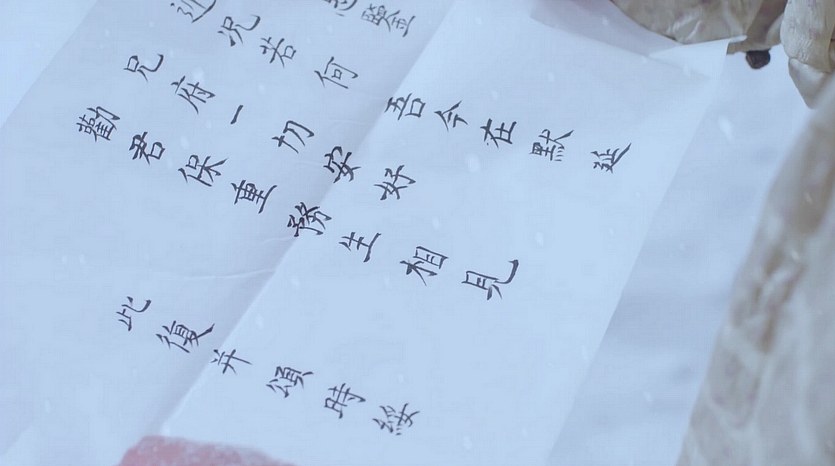 鑒
近況若何 吾今在默延
兄府一切安好
勸君保重務生相見
此復并頌時綏